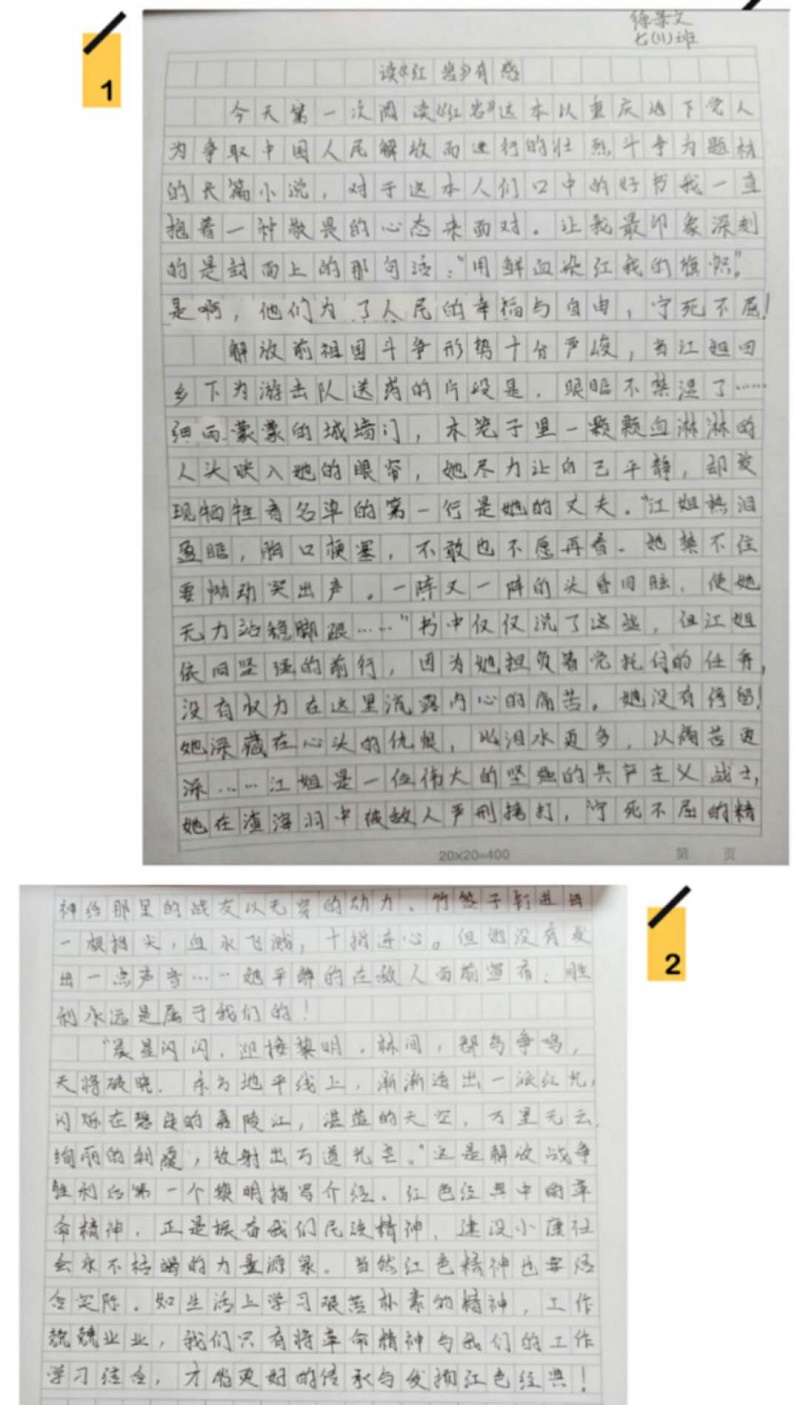 1
徐景文
七(11)班
读《红岩》有感
今天第一次阅读《红岩》这本以重庆地下党人
为争取中国人民解放而进行的壮烈斗争为题材
的长篇小说，对于这本人们口中的好书我一直
抱着一种敬畏的心态来面对。让我最印象深刻
的是封面上的那句话："用鲜血染红我的旗帜。"
是啊，他们为了人民的幸福与自由，宁死不屈！
解放前祖国斗争形势十分严峻，当江姐回
乡下为游击队送药的片段是，眼眶不禁湿了……
细雨蒙蒙的城墙门，木笼子里一颗颗血淋淋的
人头映入她的眼帘，她尽力让自己平静，却发
现牺牲者名单的第一行是她的丈夫。"江姐热泪
盈眶，胸口梗塞，不敢也不愿再看。她禁不住
要恸动哭出声。一阵又一阵的头昏目眩，使她
无力站稳脚跟……"书中仅仅说了这些，但江姐
依旧坚强的前行，因为她担负着党托付的任务，
没有权力在这里流露内心的痛苦。她没有停留！
她深藏在心头的仇恨，比泪水更多，以痛苦更
深……江姐是一位伟大的坚强的共产主义战士，
她在渣滓洞中被敌人严刑拷打，宁死不屈的精
20×20=400 第 页
2
神给那里的战友以无穷的动力。竹签子钉进
一根指尖，血水飞溅，十指连心。但她没有发
出一点声音……她平静的在敌人面前宣布，胜
利永远是属于我们的！
"晨星闪闪，迎接黎明。林间，群鸟争鸣，
天将破晓。东方地平线上，渐渐透出一派红光，
闪烁在碧绿的嘉陵江，湛蓝的天空，万里无云，
绚丽的朝霞，放射出万道光芒。"这是解放战争
胜利后第一个黎明描写介绍。红色经典中的革
命精神，正是振奋我们民族精神，建设小康社
会永不枯竭的力量源泉。当然红色精神也要结
合实际。如生活上学习艰苦朴素的精神，工作
兢兢业业，我们只有将革命精神与我们的工作
学习结合，才能更好的传承与发扬红色经典！